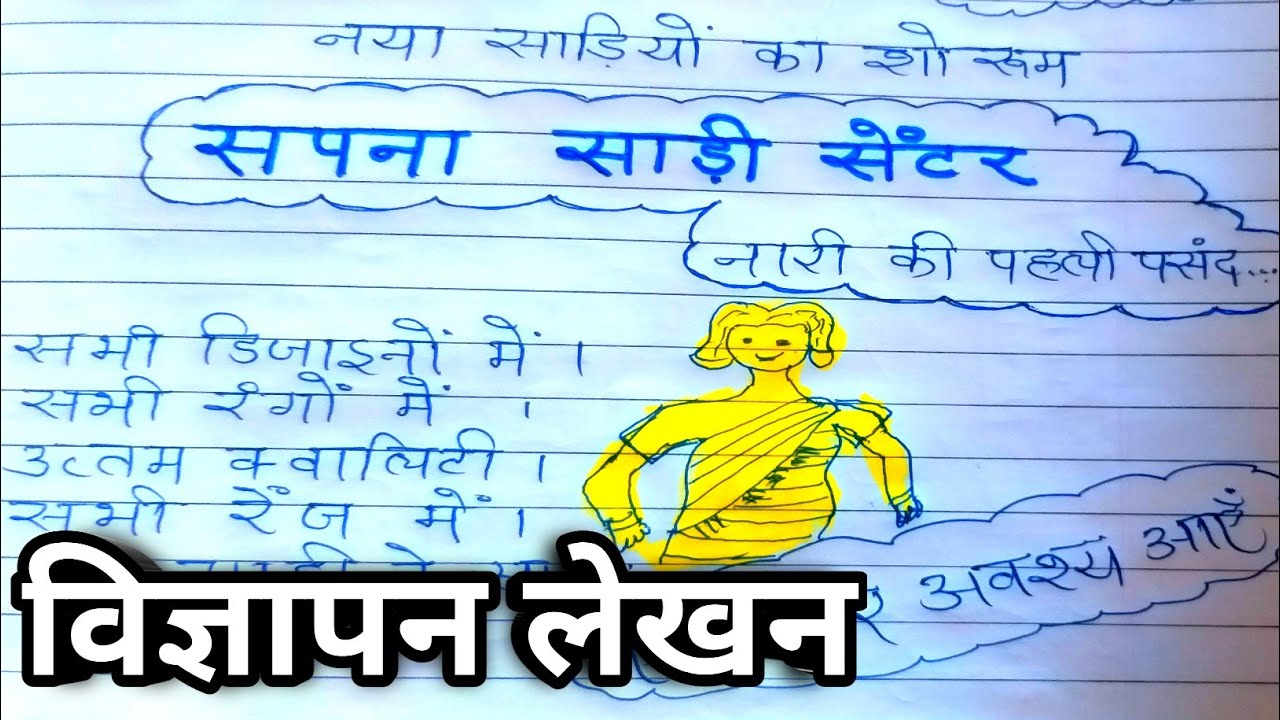 नया साड़ियों का शो रूम
सपना साड़ी सेंटर
नारी की पहली पसंद...
सभी डिजाइनों में ।
सभी रंगों में ।
उत्तम क्वालिटी ।
सभी रेंज में ।
अवश्य आएँ
विज्ञापन लेखन